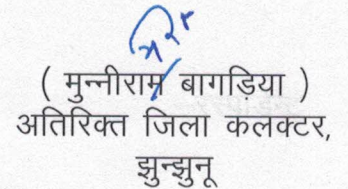 ( मुन्नीराम बागड़िया )
अतिरिक्त जिला कलक्टर,
झुन्झुनू